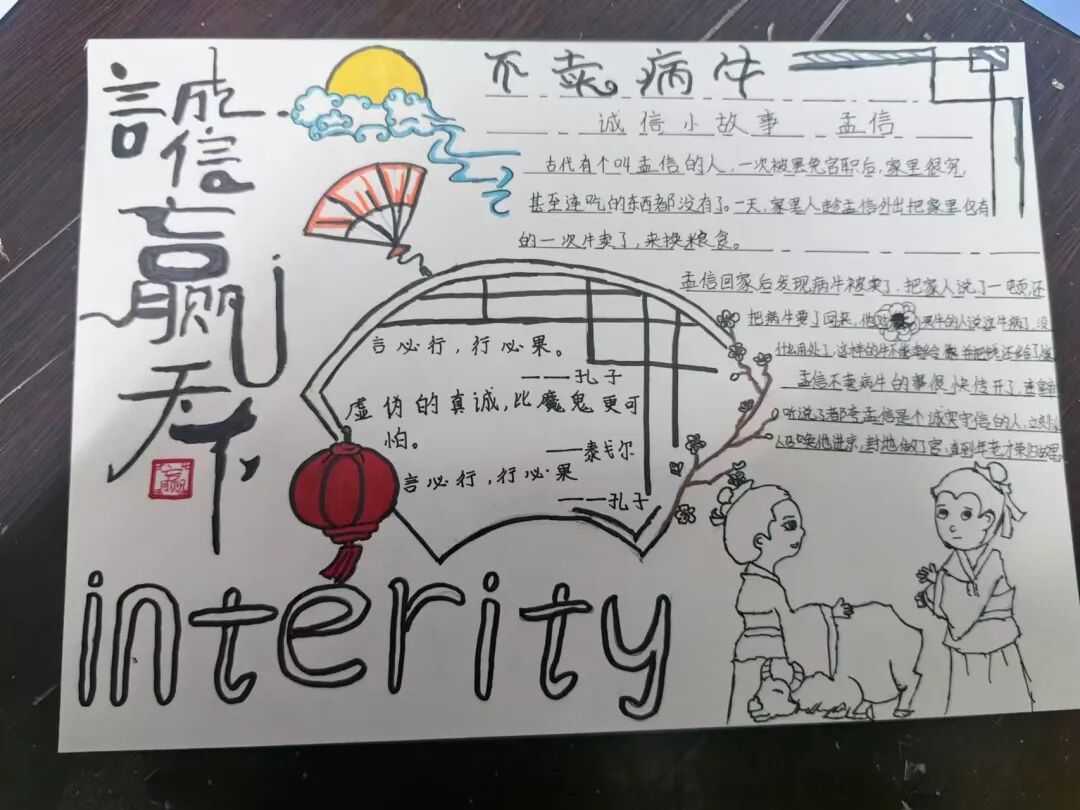 誠信
赢
天下
赢
不卖病牛
诚信小故事 孟信
古代有个叫孟信的人，一次被罢免官职后，家里很穷，
甚至连吃的东西都没有了。一天，家里人趁孟信外出把家里仅有
的一次牛卖了，来换粮食。
孟信回家后发现病牛被卖了，把家人说了一顿还
把病牛要了回来，他对买牛的人说这牛病了，没
什么用处了，这样的牛不能卖给 并把钱还给了
孟信不卖病牛的事很快传开了，
听说了都夸孟信是个诚实守信的人，立刻
人召唤他进京，封地做了官，直到年老才荣归故里
言必行，行必果。
——孔子
虚伪的真诚，比魔鬼更可
怕。
——泰戈尔
言必行，行必果
——孔子
interity